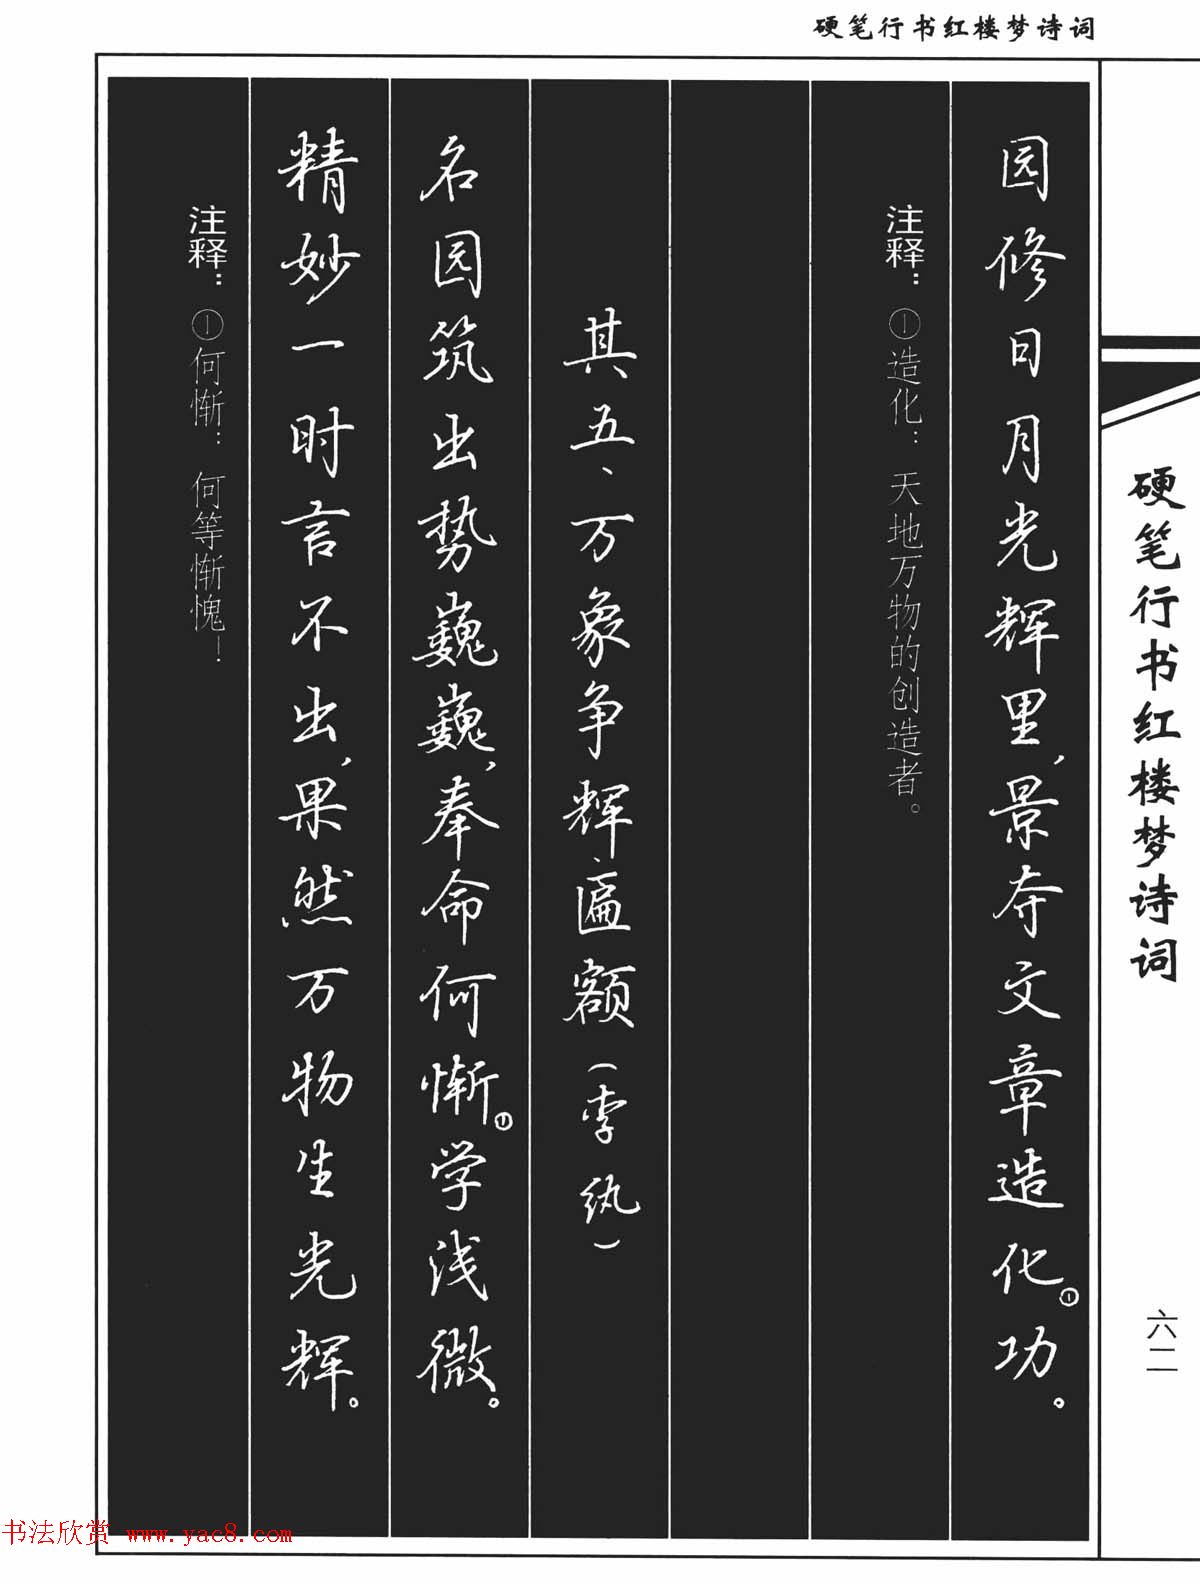 硬笔行书红楼梦诗词
园修日月光辉里，景夺文章造化①功。
注释：①造化：天地万物的创造者。
其五、万象争辉匾额（李纨）
名园筑出势巍巍，奉命何惭①学浅微。
精妙一时言不出，果然万物生光辉。
注释：①何惭：何等惭愧！
硬笔行书红楼梦诗词
六二
书法欣赏 www.yac8.com